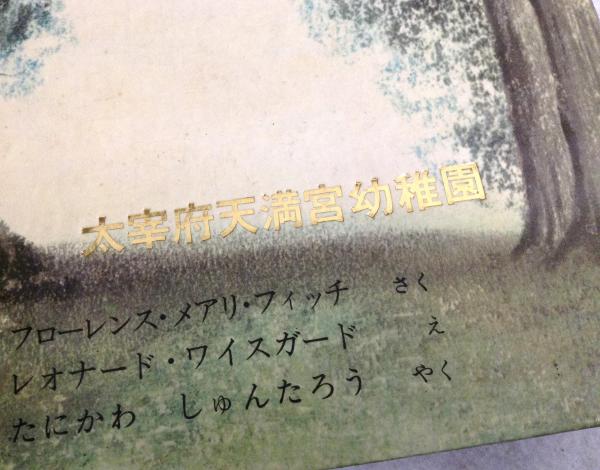 太宰府天満宮幼稚園
フローレンス・メアリ・フィッチ さく
レオナード・ワイスガード え
たにかわ しゅんたろう やく